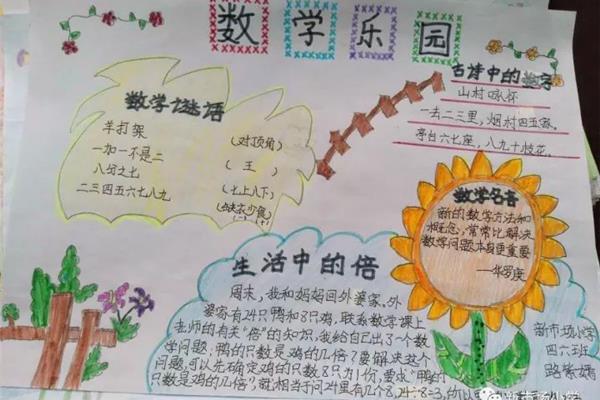 数学乐园
数学谜语
羊打架 (对顶角)
一加一不是二 (王)
八分之七 (七上八下)
二三四五六七八九 (缺衣少食)
古诗中的数字
山村咏怀
一去二三里,烟村四五家。
亭台六七座,八九十枝花。
数学名言
新的数学方法和
概念,常常比解决
数学问题本身更重要
——华罗庚
生活中的倍
周末,我和妈妈回外婆家。外
婆家有24只鸭和8只鸡,联系数学课上
老师的有关“倍”的知识,我给自己出了一个数
学问题,鸭的只数是鸡的几倍?要解决这个
问题,可以先确定鸡的只数8只为1份,要求“鸭的
只数是鸡的几倍”,就相当于问24里有几个8,24÷8=3,所以
新市场小学
四六班